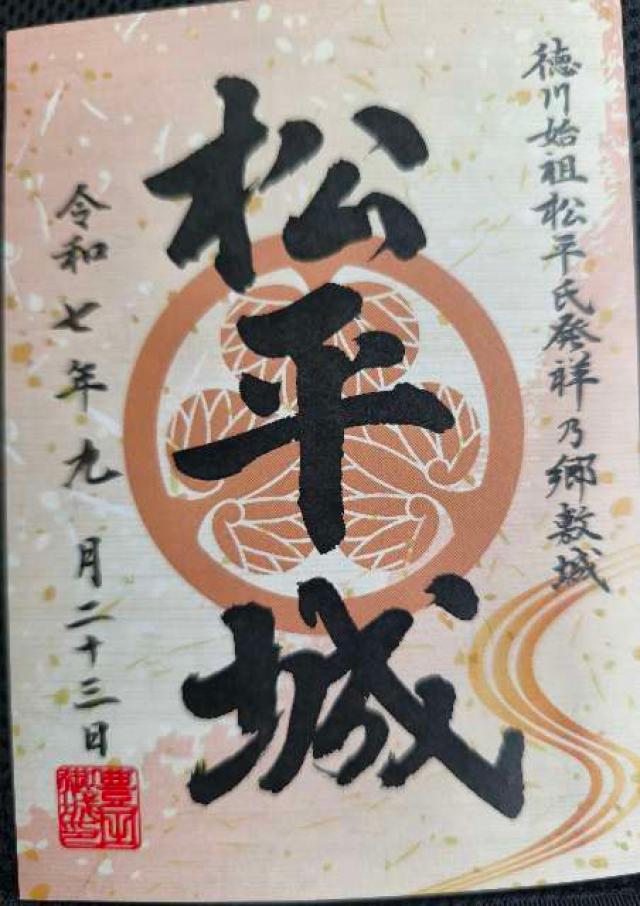 徳川始祖松平氏発祥乃郷敷城
松平城
令和七年九月二十三日